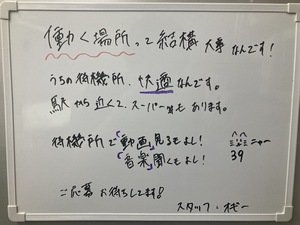 働く場所って結構大事なんです!
うちの待機所、快適なんです。
駅から近くて、スーパー等もあります。
待機所で「動画」見るもよし!
「音楽」聞くもよし!
ニャー
39
ご応募お待ちしてます!
スタッフ・オギー